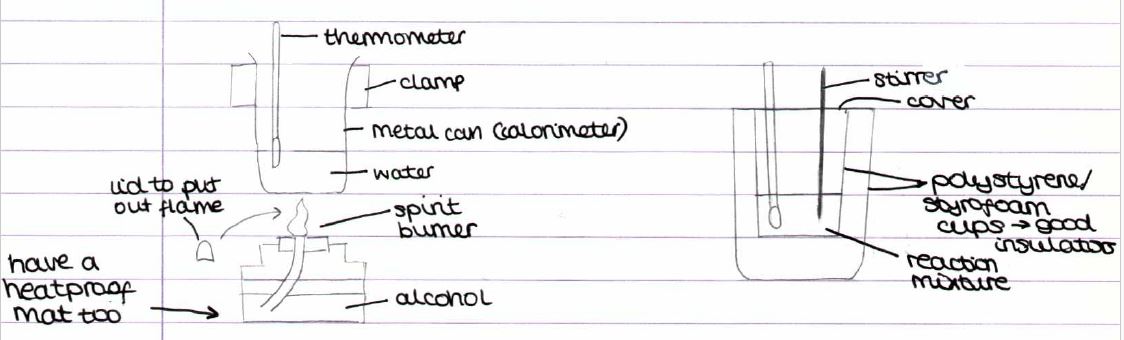 thermometer
clamp
metal can (calorimeter)
water
lid to put
out flame
spirit
burner
have a
heatproof
mat too
alcohol
stirrer
cover
polystyrene/
styrofoam
cups → good
insulators
reaction
mixture